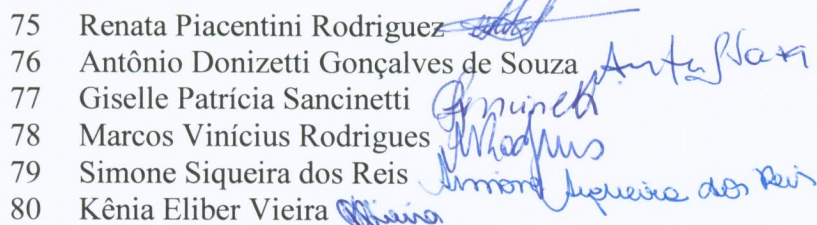 75 Renata Piacentini Rodriguez
76 Antônio Donizetti Gonçalves de Souza
77 Giselle Patrícia Sancinetti
78 Marcos Vinícius Rodrigues
79 Simone Siqueira dos Reis Simone Siqueira dos Reis
80 Kênia Eliber Vieira Vieira